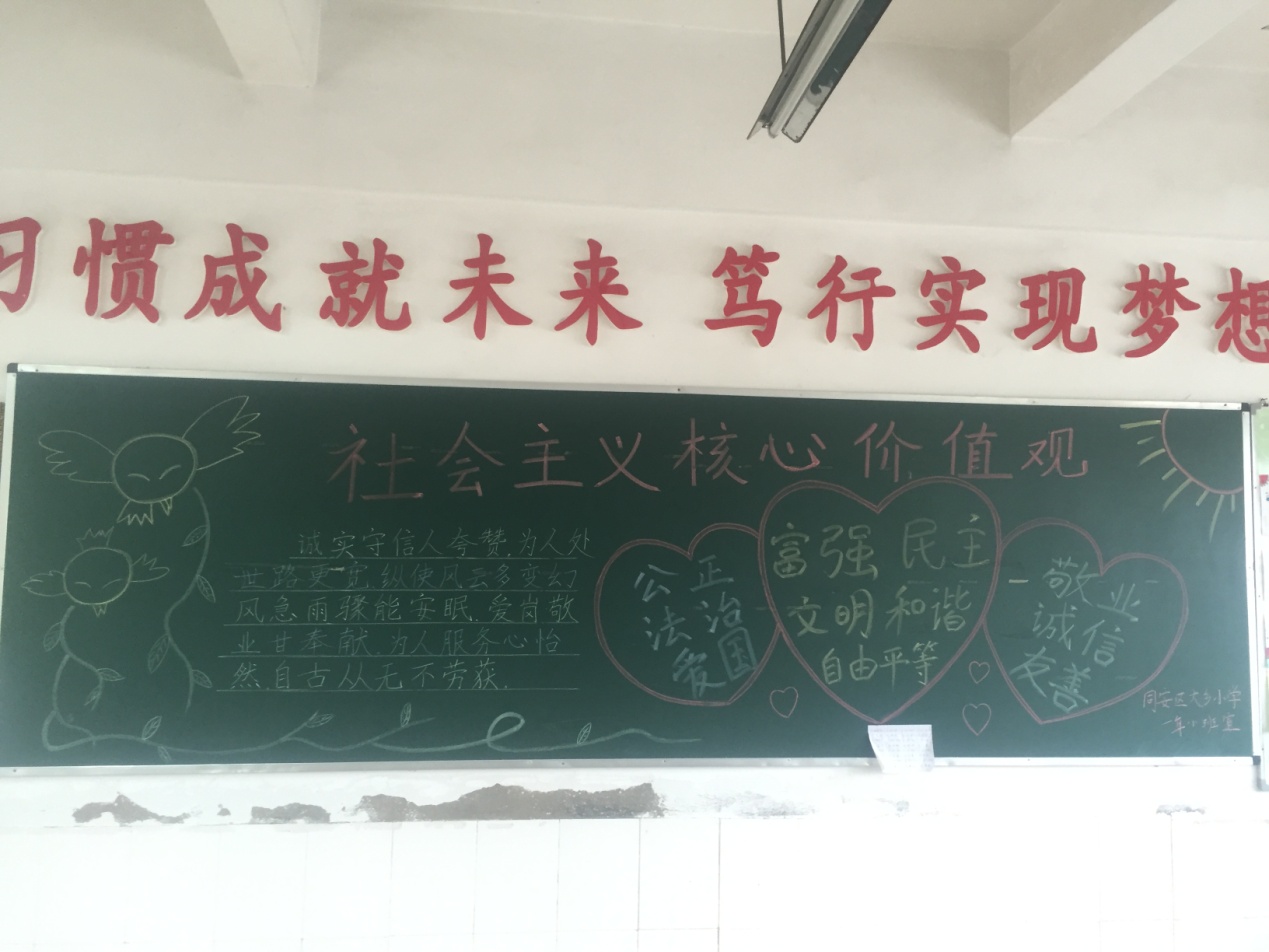 习惯成就未来 笃行实现梦想
社会主义核心价值观
诚实守信人夸赞,为人处
世路更宽,纵使风云多变幻
风急雨骤能安眠,爱岗敬
业甘奉献,为人服务心怡
然,自古从无不劳获.
公正
法治
爱国
富强 民主
文明 和谐
自由平等
敬业
诚信
友善
同安区大乡小学